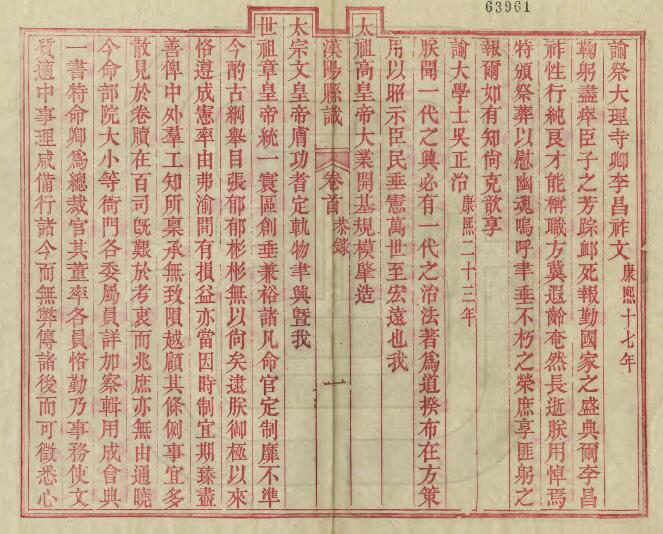 63961
諭祭大理寺卿李昌祚文康熙十七年
鞠躬盡瘁臣子之芳踪卹死報勤國家之盛典爾李昌
祚性行純良才能稱職方冀遐齡奄然長逝朕用悼焉
特頒祭葬以慰幽魂嗚呼聿垂不朽之榮庶享匪躬之
報爾如有知尚克歆享
諭大學士吳正治康熙二十三年
朕聞一代之興必有一代之治法著爲道揆布在方策
用以昭示臣民垂憲萬世至宏遠也我
太祖高皇帝大業開基規模肇造
漢陽縣識
卷首
恭錄
一
太宗文皇帝膚功耆定軌物聿興暨我
世祖章皇帝統一寰區創垂兼裕諸凡命官定制靡不準
今酌古綱舉目張郁郁彬彬無以尚矣逮朕御極以來
恪遵成憲率由弗渝間有損益亦當因時制宜期臻盡
善俾中外羣工知所稟承無致隕越顧其條例事宜多
散見於卷牘在百司旣艱於考衷而兆庶亦無由通曉
今命部院大小等衙門各委屬員詳加察輯用成會典
一書特命卿爲總裁官其董率各員恪勤乃事務使文
質適中事理咸備行諸今而無弊傳諸後而可徵悉心